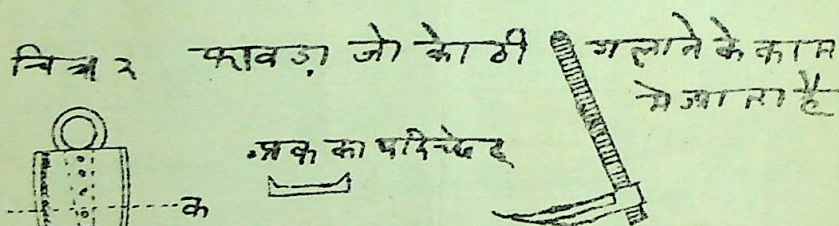 चित्र २ फावड़ा जो कोठी गलाने के काम
मे आता है
अक का परिच्छेद
क